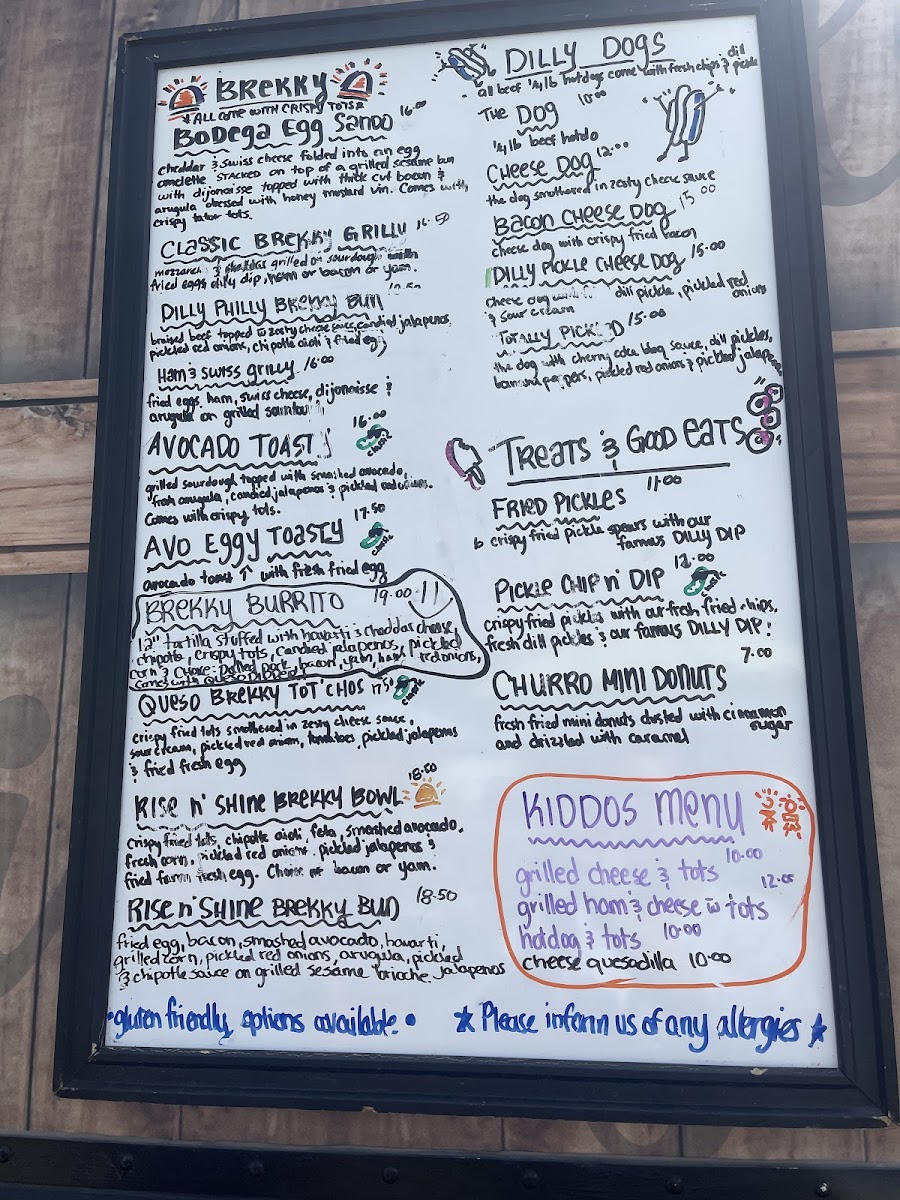 BREKKY
ALL COME WITH CRISPY TOTS
BODEGA EGG SANDO 16.00
cheddar & swiss cheese folded into an egg
omelette STACKED on top of a grilled sesame bun
with dijonaisse topped with thick cut bacon &
arugula dressed with honey mustard vin. Comes with
crispy tator tots.
CLASSIC BREKKY GRILLY 16.50
grilled on sourdough with
fried eggs, dilly dip, ham or bacon or yam.
DILLY PHILLY BREKKY BUN
braised beef topped w zesty cheese sauce, candied jalapenos,
pickled red onions, chipotle aioli & fried egg
Ham & SWISS GRILLY 16.00
fried eggs, ham, swiss cheese, dijonaisse &
arugula on grilled
AVOCADO TOAST 16.00
grilled sourdough topped with smashed avocado,
fresh arugula, candied jalapenos & pickled red onions.
Comes with crispy tots.
AVO EGGY TOASTY 17.50
avocado toast ↑ with fresh fried egg
BREKKY BURRITO 19.00
12" tortilla stuffed with havarti & cheddar cheese,
chipotle, crispy tots, candied jalapenos, pickled
corn & CHOICE: Pulled Pork, bacon, yam, ham red onions,
comes with QUESO
QUESO BREKKY TOT'CHOS 17.50
crispy fried tots smothered in zesty cheese sauce,
sour cream, pickled red onion, tomatoes, pickled jalapenos
& fried fresh egg
RISE n' SHINE BREKKY BOWL 18.50
Crispy fried tots, chipotle aioli, feta, smashed avocado,
fresh corn, pickled red onions, pickled jalapenos &
fried farm fresh egg. Choice of bacon or yam.
RISE n' SHINE BREKKY BUN 18.50
fried egg, bacon, smashed avocado, havarti,
grilled corn, pickled red onions, arugula, pickled
& chipotle sauce on grilled sesame brioche. jalapenos
DILLY DOGS
all beef 1/4 lb hotdogs come with fresh chips & dill pickle
THE DOG 10.00
1/4 lb beef hotdo
CHEESE DOG 12.00
the dog smothered in zesty cheese sauce
BACON CHEESE DOG 15.00
cheese dog with crispy fried bacon
DILLY PICKLE CHEESE DOG 15.00
cheese dog dill pickle, pickled red onions
& sour cream
TOTALLY 15.00
the dog with cherry coke bbq sauce, dill pickles,
banana peppers, pickled red onions & pickled jalapenos
TREATS & GOOD EATS
FRIED PICKLES 11.00
6 crispy fried pickle spears with our
famous DILLY DIP
PICKLE CHIP n' DIP 12.00
crispy fried pickles with our fresh fried chips,
fresh dill pickles & our famous DILLY DIP!
CHURRO MINI DONUTS 7.00
fresh fried mini donuts dusted with cinnamon sugar
and drizzled with caramel
KIDDOS MENU
grilled cheese & tots 10.00
grilled ham & cheese w tots 12.00
hotdog & tots 10.00
cheese quesadilla 10.00
• gluten friendly options available •
★ Please inform us of any allergies ★